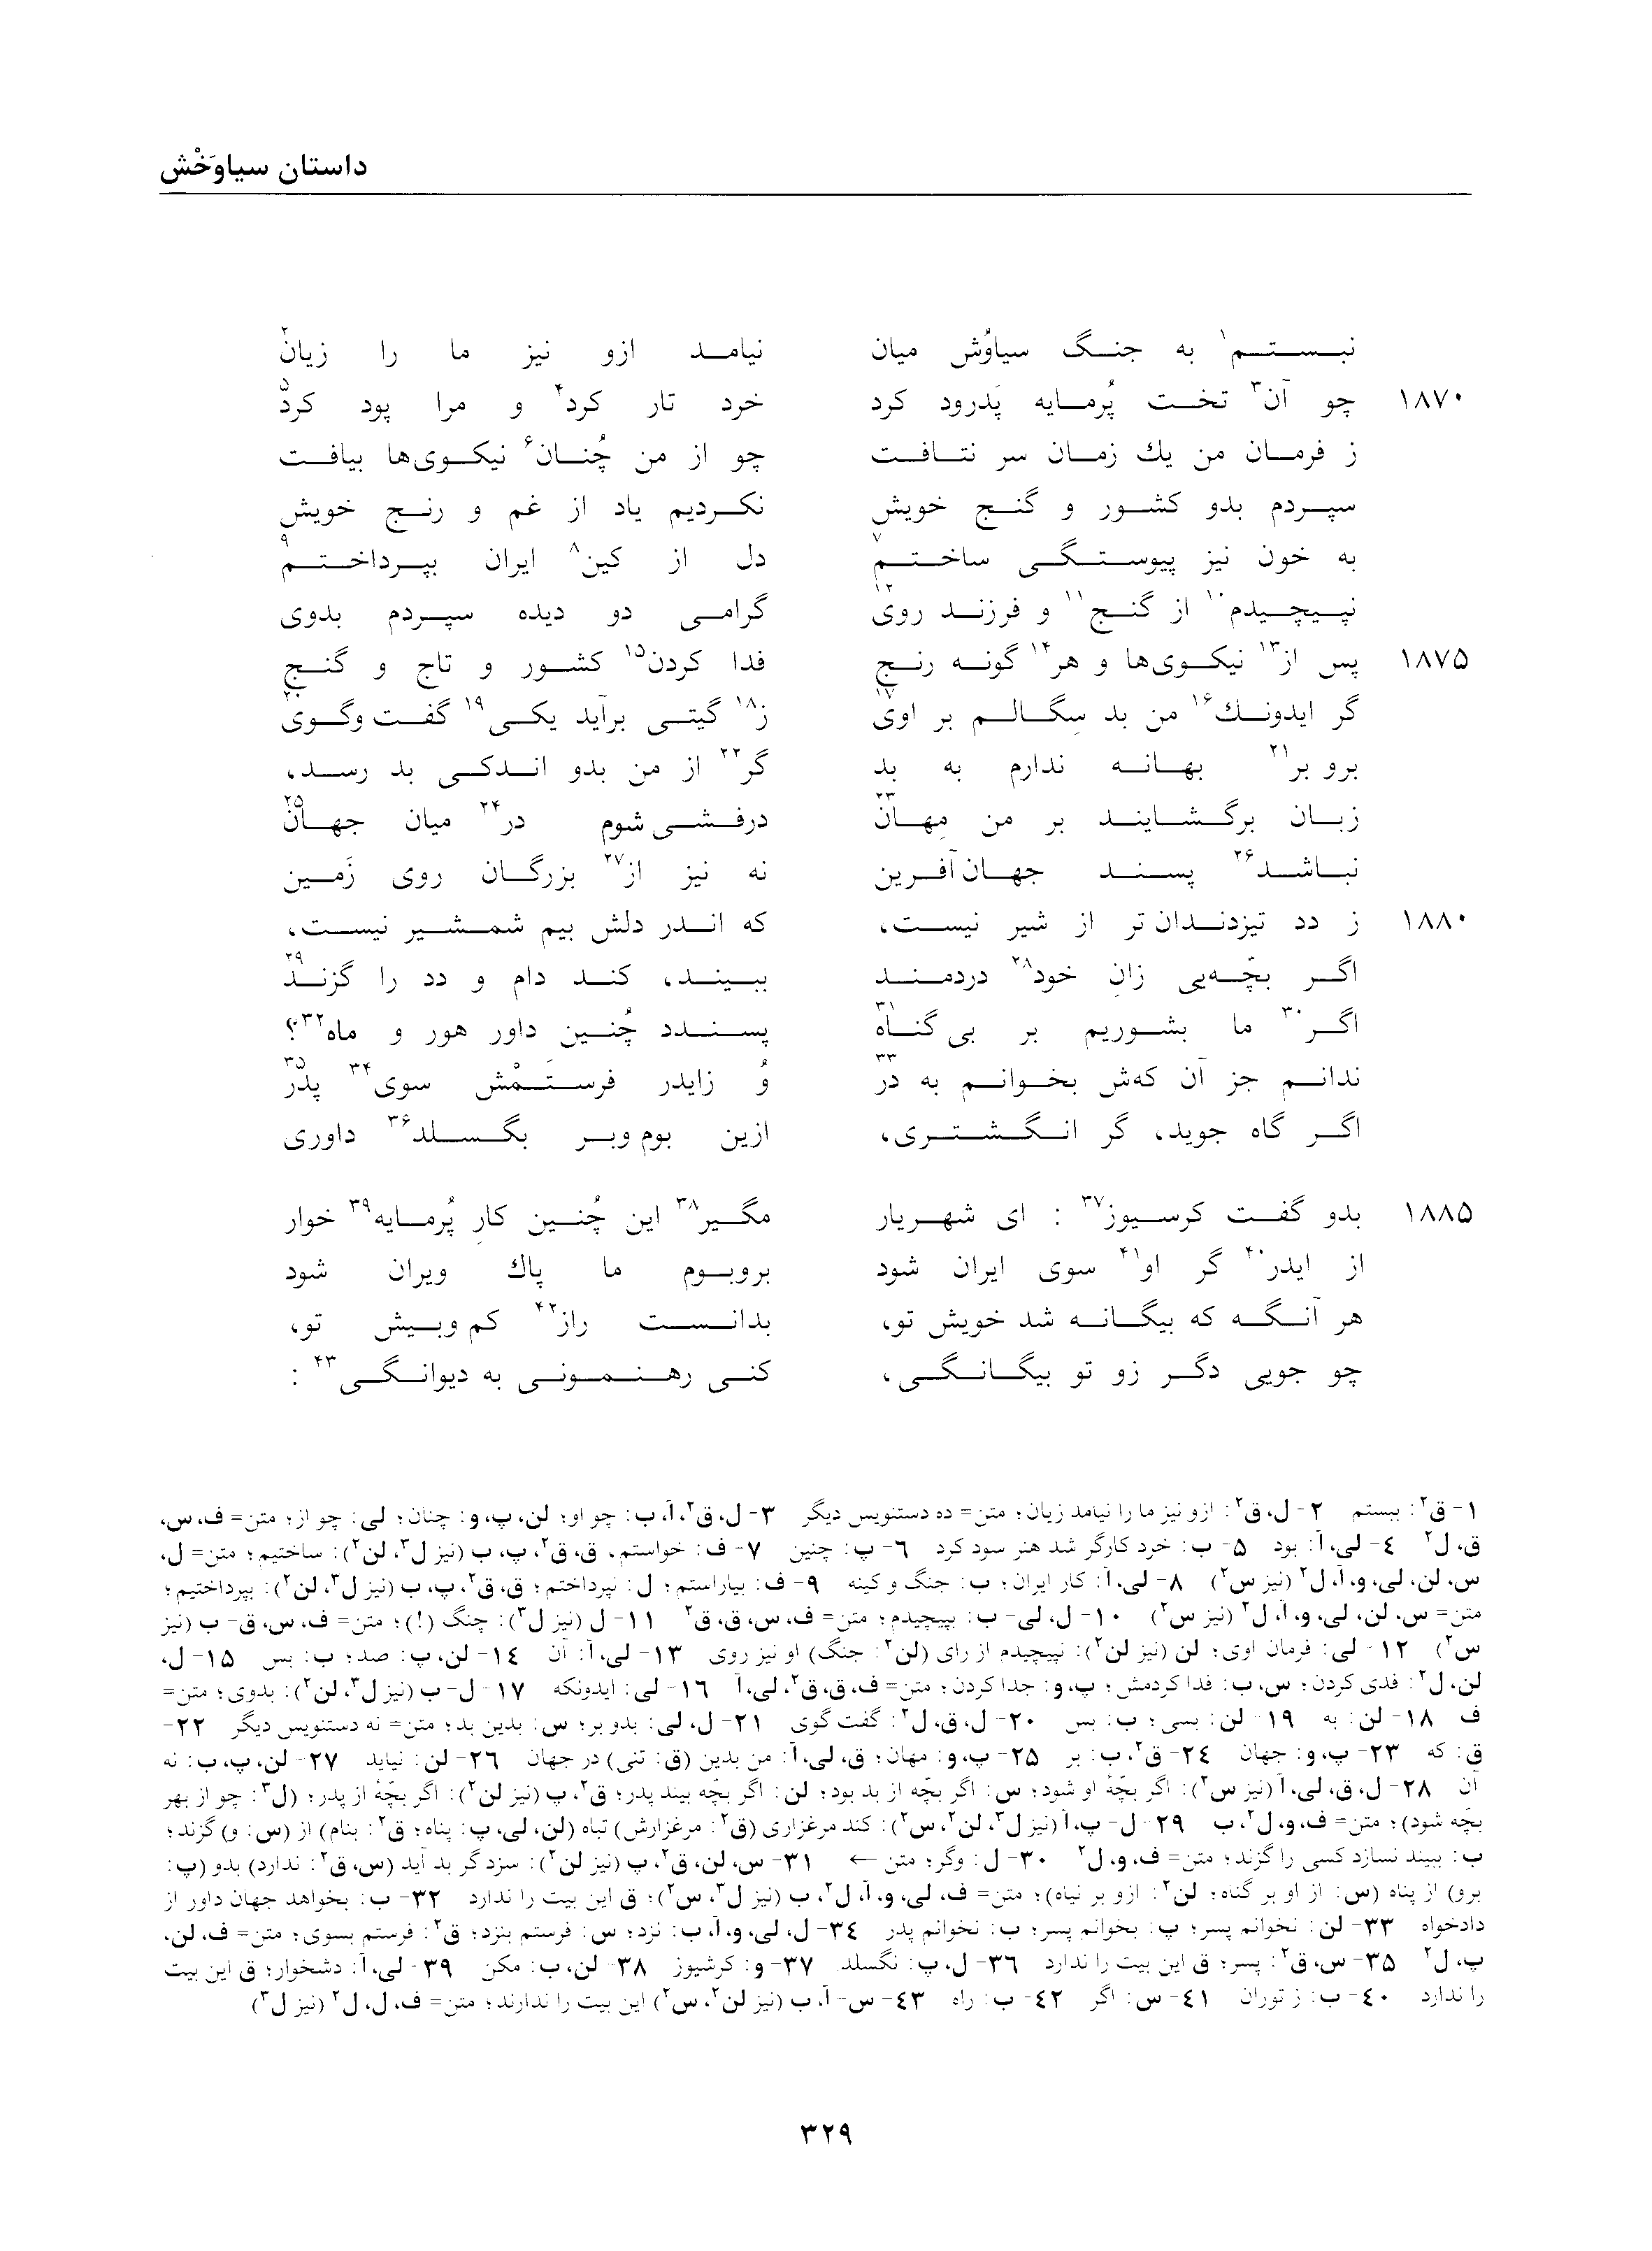 داستان سیاوَخْش
نبستم۱ به جنگ سیاوُش میان نیامد ازو نیز ما را زیان۲
۱۸۷۰ چو آن۳ تخت پُرمایه پَدرود کرد خرد تار کرد۴ و مرا پود کرد۵
ز فرمان من یك زمان سر نتافت چو از من چُنان۶ نیکوی‌ها بیافت
سپردم بدو کشور و گنج خویش نکردیم یاد از غم و رنج خویش
به خون نیز پیوستگی ساختم۷ دل از کین۸ ایران بپرداختم۹
نپیچیدم۱۰ از گنج۱۱ و فرزند روی۱۲ گرامی دو دیده سپردم بدوی
۱۸۷۵ پس از۱۳ نیکوی‌ها و هر۱۴ گونه رنج فدا کردن۱۵ کشور و تاج و گنج
گر ایدونك۱۶ من بد سِگالم بر اوی۱۷ ز۱۸ گیتی برآید یکی۱۹ گفت وگوی۲۰
برو بر۲۱ بهانه ندارم به بد گر۲۲ از من بدو اندکی بد رسد،
زبان برگشایند بر من مِهان۲۳ درفشی شوم در۲۴ میان جهان۲۵
نباشد۲۶ پسند جهان‌آفرین نه نیز از۲۷ بزرگان روی زَمین
۱۸۸۰ ز دد تیزدندان تر از شیر نیست، که اندر دلش بیم شمشیر نیست،
اگر بچّه‌یی زانِ خود۲۸ دردمند ببیند، کند دام و دد را گزند۲۹
اگر۳۰ ما بشوریم بر بی گناه۳۱ پسندد چُنین داور هور و ماه۳۲؟
ندانم جز آن که‌ش بخوانم به در۳۳ وُ زایدر فرستَمْش سوی۳۴ پدر۳۵
اگر گاه جوید، گر انگشتری، ازین بوم وبر بگسلد۳۶ داوری
۱۸۸۵ بدو گفت کرسیوز۳۷ : ای شهریار مگیر۳۸ این چُنین کارِ پُرمایه۳۹ خوار
از ایدر۴۰ گر او۴۱ سوی ایران شود بروبوم ما پاك ویران شود
هر آنگه که بیگانه شد خویش تو، بدانست راز۴۲ کم وبیش تو،
چو جویی دگر زو تو بیگانگی، کنی رهنمونی به دیوانگی۴۳ :
۱- ق۲: ببستم ۲- ل، ق۲: ازو نیز ما را نیامد زیان؛ متن= ده دستنویس دیگر ۳- ل، ق۲، آ، ب: چو او؛ لن، پ، و: چنان؛ لی: چو از؛ متن= ف، س،
ق، ل۲ ٤- لی، آ: بود ۵- ب: خرد کارگر شد هنر سود کرد ۶- پ: چنین ۷- ف: خواستم، ق، ق۲، پ، ب (نیز ل۳، لن۲): ساختیم؛ متن= ل،
س، لن، لی، و، آ، ل۲ (نیز س۲) ۸- لی، آ: کار ایران؛ ب: جنگ و کینه ۹- ف: بیاراستم؛ ل: نپرداختم؛ ق، ق۲، پ، ب (نیز ل۳، لن۲): بپرداختیم؛
متن= س، لن، لی، و، آ، ل۲ (نیز س۲) ۱۰- ل، لی- ب: بپیچیدم؛ متن= ف، س، ق، ق۲ ۱۱- ل (نیز ل۳): چنگ (!)؛ متن= ف، س، ق- ب (نیز
س۲) ۱۲- لی: فرمان اوی؛ لن (نیز لن۲): نپیچیدم از رای (لن۲: جنگ) او نیز روی ۱۳- لی، آ: آن ۱٤- لن، پ: صد؛ ب: بس ۱۵- ل،
لن، ل۲: فدی کردن؛ س، ب: فدا کردمش؛ پ، و: جدا کردن؛ متن= ف، ق، ق۲، لی، آ ۱۶- لی: ایدونکه ۱۷- ل- ب (نیز ل۳، لن۲): بدوی؛ متن=
ف ۱۸- لن: به ۱۹- لن: بسی؛ ب: بس ۲۰- ل، ق، ل۲: گفت گوی ۲۱- ل، لی: بدو بر؛ س: بدین بد؛ متن= نه دستنویس دیگر ۲۲-
ق: که ۲۳- پ، و: جهان ۲٤- ق۲، ب: بر ۲۵- پ، و: مهان؛ ق، لی، آ: من بدین (ق: تنی) در جهان ۲۶- لن: نیاید ۲۷- لن، پ، ب: نه
آن ۲۸- ل، ق، لی، آ (نیز س۲): اگر بچّهٔ او شود؛ س: اگر بچّه از بد بود؛ لن: اگر بچّه بیند پدر؛ ق۲، پ (نیز لن۲): اگر بچّهٔ از پدر؛ (ل۳: چو از بهر
بچّه شود)؛ متن= ف، و، ل۲، ب ۲۹- ل- پ، آ (نیز ل۳، لن۲، س۲): کند مرغزاری (ق۲: مرغزارش) تباه (لن، لی، پ: پناه؛ ق۲: بنام) از (س: و) گزند؛
ب: ببیند نسازد کسی را گزند؛ متن= ف، و، ل۲ ۳۰- ل: وگر؛ متن ← ۳۱- س، لن، ق۲، پ (نیز لن۲): سزد گر بد آید (س، ق۲: ندارد) بدو (پ:
برو) از پناه (س: از او بر گناه؛ لن۲: ازو بر نیاه)؛ متن= ف، لی، و، آ، ل۲، ب (نیز ل۳، س۲)؛ ق این بیت را ندارد ۳۲- ب: بخواهد جهان داور از
دادخواه ۳۳- لن: نخوانم پسر؛ پ: بخوانم پسر؛ ب: نخوانم پدر ۳٤- ل، لی، و، آ، ب: نزد؛ س: فرستم بنزد؛ ق۲: فرستم بسوی؛ متن= ف، لن،
پ، ل۲ ۳۵- س، ق۲: پسر؛ ق این بیت را ندارد ۳۶- ل، پ: نگسلد ۳۷- و: کرشیوز ۳۸- لن، ب: مکن ۳۹- لی، آ: دشخوار؛ ق این بیت
را ندارد ٤۰- ب: ز توران ٤۱- س: اگر ٤۲- ب: راه ٤۳- س- آ، ب (نیز لن۲، س۲) این بیت را ندارند؛ متن= ف، ل، ل۲ (نیز ل۳)
۳۲۹